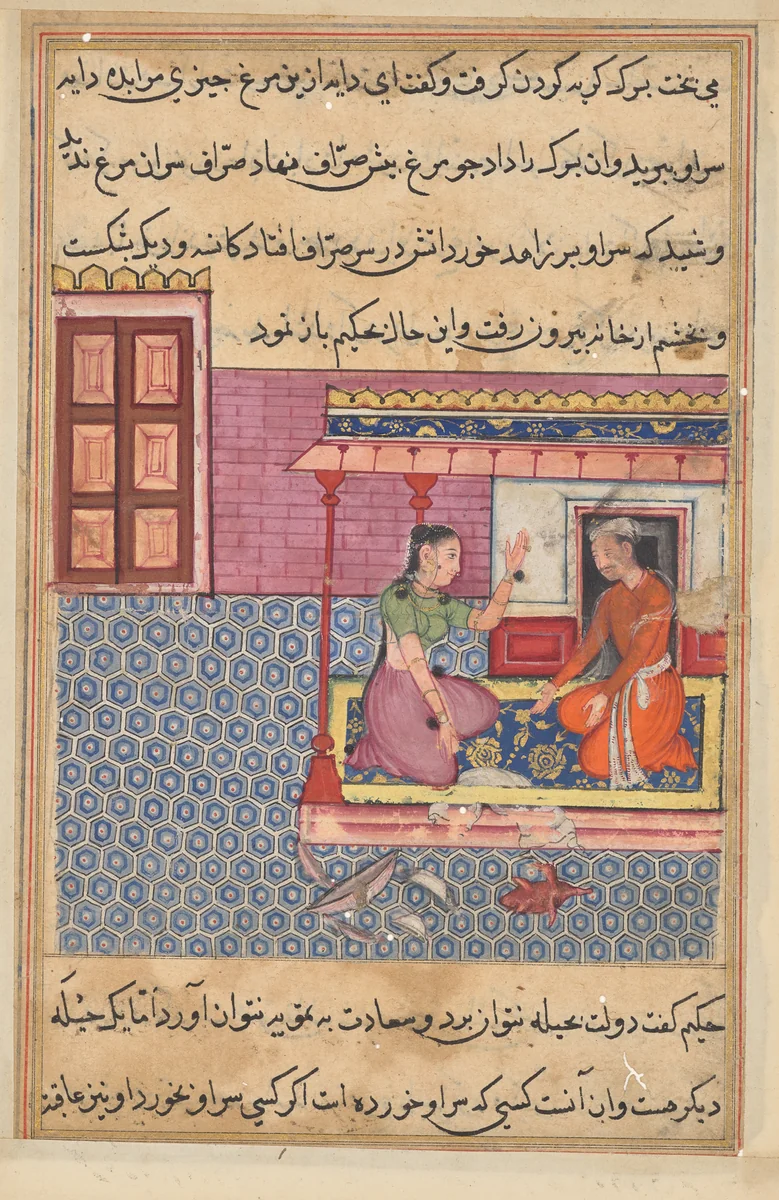 می بخت بزک کریه کردن کرفت و کفت ای دایه ازین مرغ جیزی مرا بده دایه
سر او ببرید و ان بزک را داد جو مرغ پیش صرّاف نهاد صرّاف سر ان مرغ ندید
و شنید که سر او بسر زاهد خورد اتش در سر صرّاف افتاد کاسه و دیک بشکست
و بخشم از خانه بیرون رفت و این حال بحکیم باز نمود
حکیم کفت دولت بحیله نتوان برد و سعادت به نتوان آورد امّا یک حیله
دیکر هست و ان آنست کسی که سر او خورده است اکر کسی سر او بخورد او نیز عاقبت